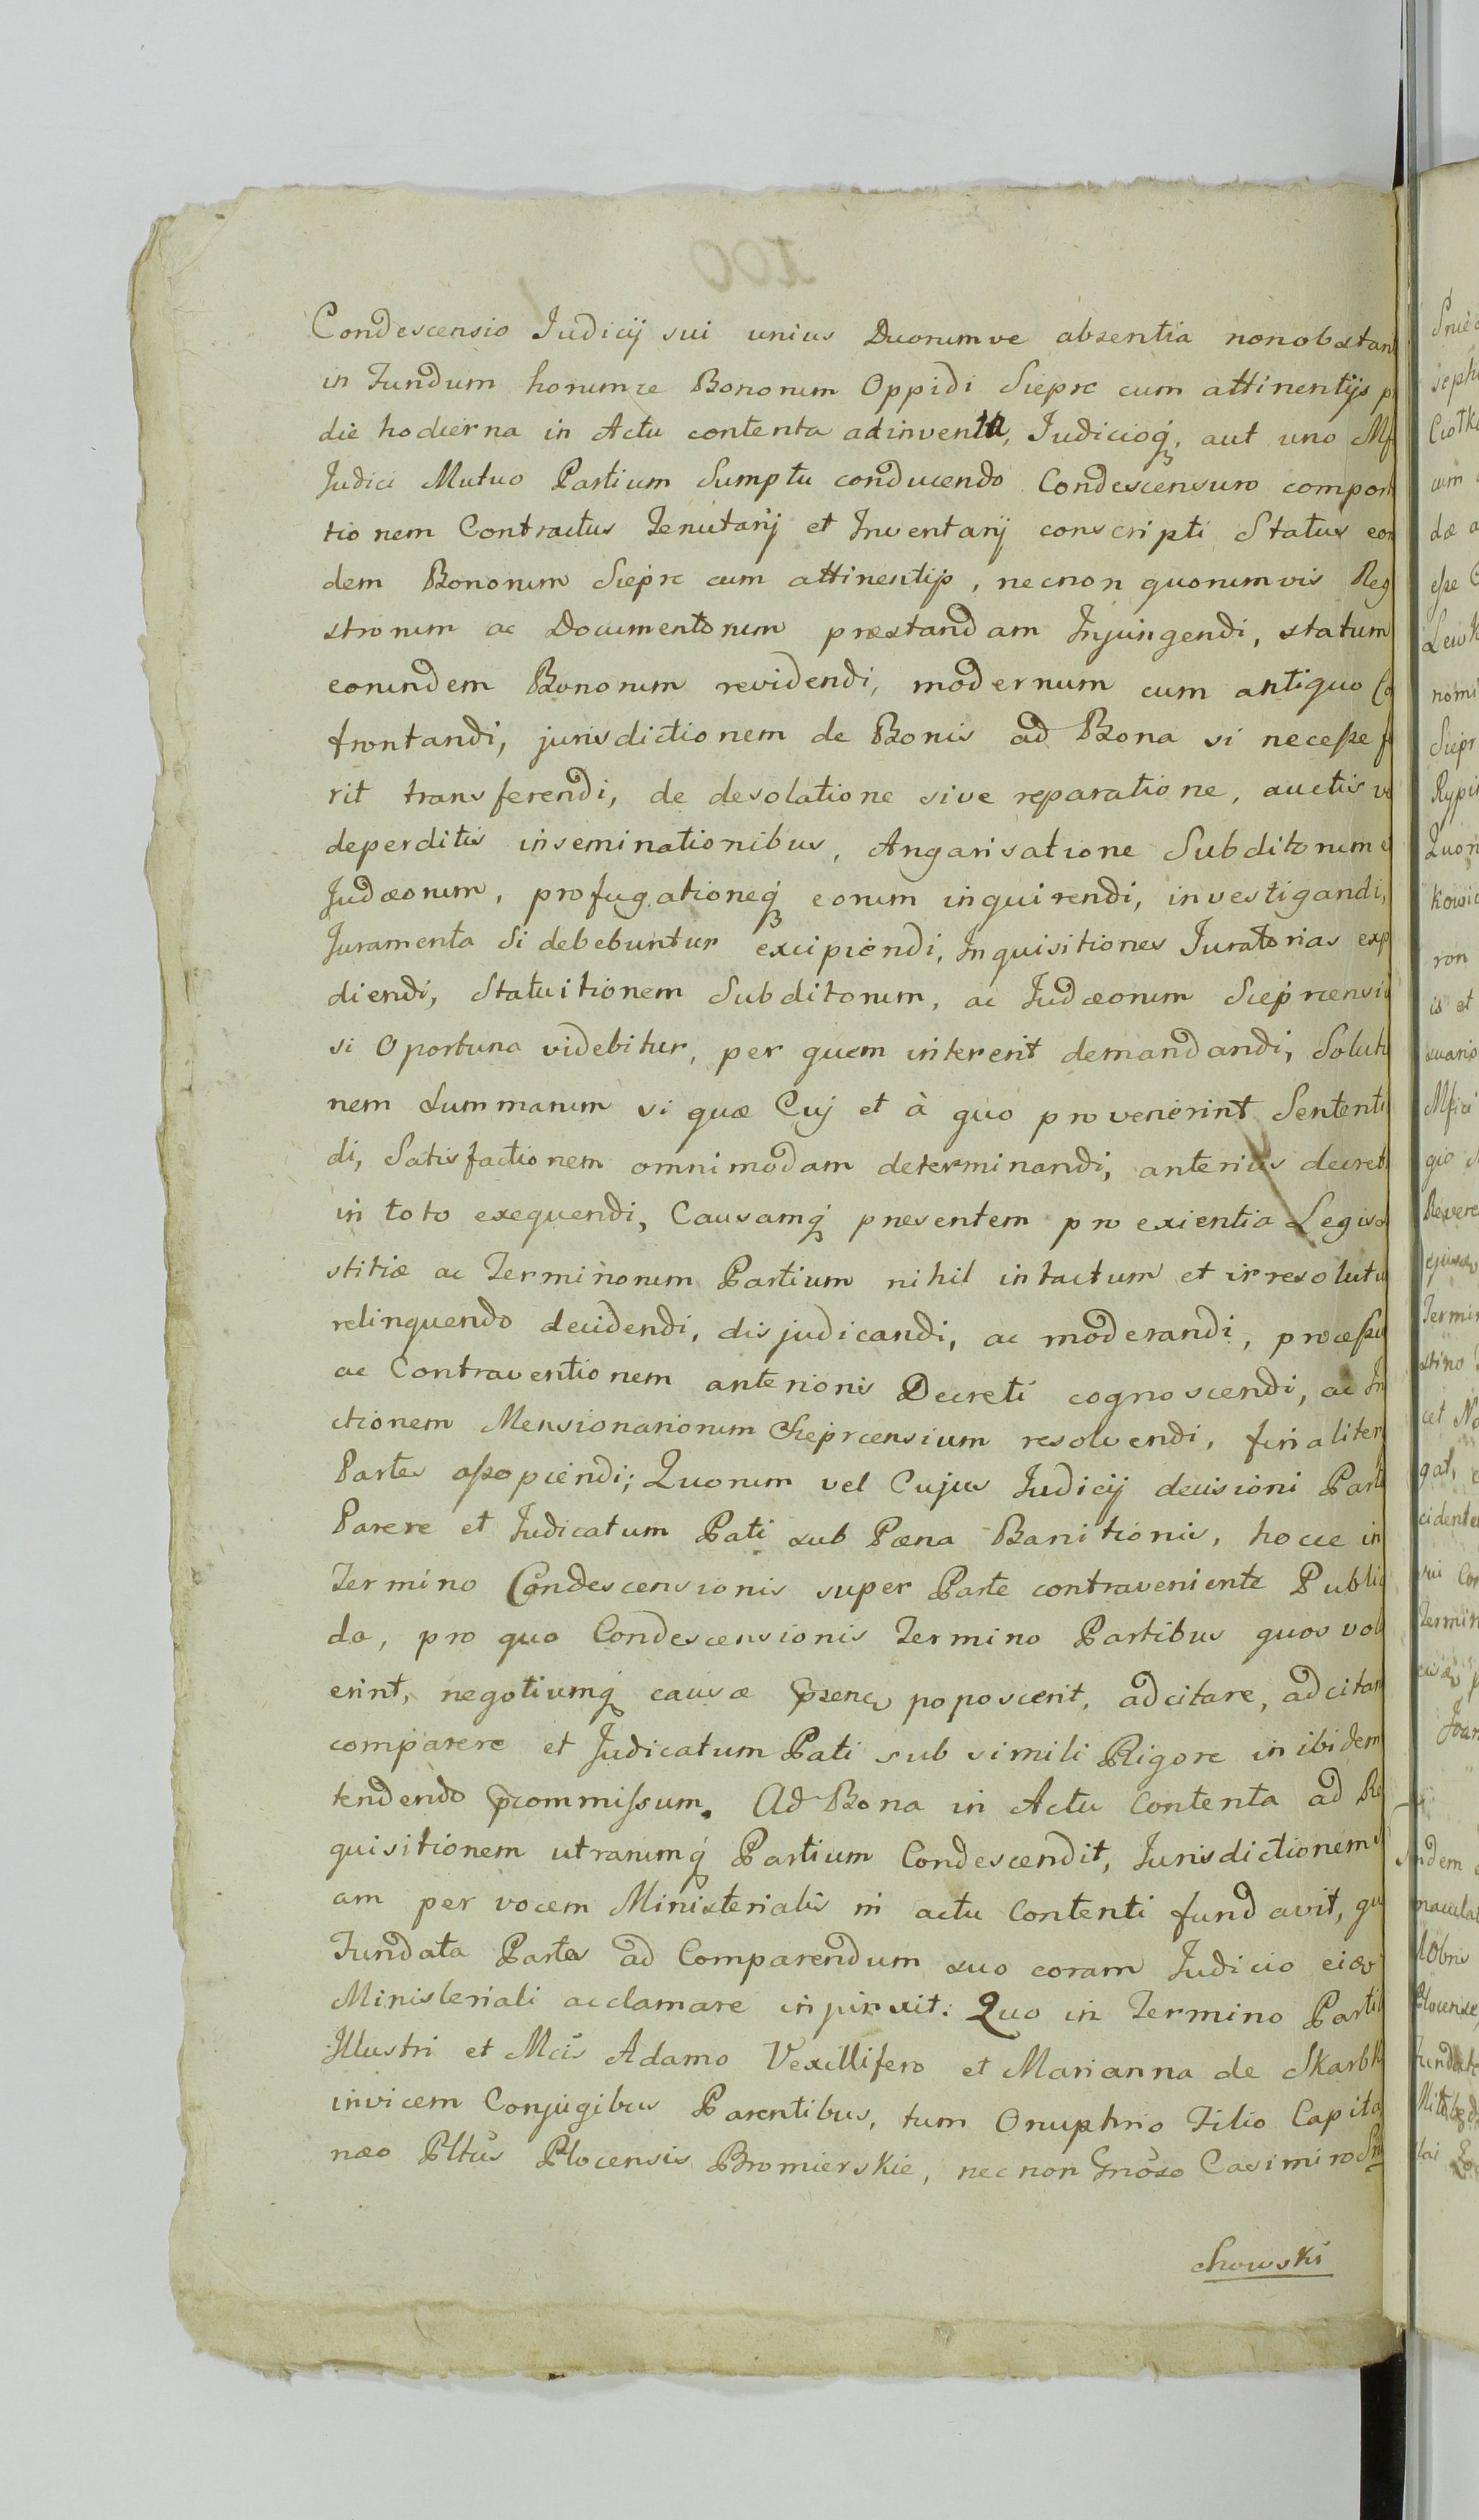 Condescensio Judicij sui unius Duorumve absentia nonobstan
in Fundum horumce Bonorum Oppidi Sieprc cum attinentijs p
die hodierna in Actu contenta adinventa, Judicioq́, aut uno Mf
Judici Mutuo Partium Sumptu conducendo Condescensuro compor
tionem Contractus Tenutarij et Inventarij conscripti Status eor
dem Bonorum Sieprc cum attinentijs, necnon quorumvis Reg
strorum ac Documentorum præstandam Injungendi, statum
eorundem Bonorum revidendi, modernum cum antiquo Co
frontandi, jurisdictionem de Bonis ad Bona si necesse f
rit transferendi, de desolatione sive reparatione, auctis v
deperditis inseminationibus, Angarisatione Subditorum e
Judæorum, profugationeq́ eorum inquirendi, investigandi,
Juramenta Si debebuntur excipiendi, Inquisitiones Juratorias exp
diendi, Statuitionem Subditorum, ac Judæorum Sieprcensiu
si Oportuna videbitur, per quem intererit demandandi, Solutio
nem Summarum si quæ Cuj et à quo provenerint Sententi
di, Satisfactionem omnimodam determinandi, anterius decret
in toto exequendi, Causamq́ presentem pro exientia Legis
stitiæ ac Terminorum Partium nihil intactum et irresolutu
relinquendo decidendi, disjudicandi, ac moderandi, processu
ac Contraventionem anterioris Decreti cognoscendi, ac In
ctionem Mensionariorum Sieprcensium resolvendi, finaliter
Partes assopiendi; Quorum vel Cujus Judicij decisioni Parte
Parere et Judicatum Pati sub Pœna Banitionis, hocce in
Termino Condescensionis super Parte contraveniente Public
da, pro quo Condescensionis Termino Partibus quos vol
erint, negotiumq́ causæ poposcerit, adcitare, adcitan
comparere et Judicatum Pati sub simili Rigore in ibidem
tendendo commissum. Ad Bona in Actu Contenta ad Re
quisitionem utrarumq́ Partium Condescendit, Jurisdictionem
am per vocem Ministerialis in actu Contenti fundavit, qu
Fundata Partes ad Comparendum suo coram Judicio
Ministeriali acclamare injunxit. Quo in Termino Parti
Illustri et Mcis Adamo Vexillifero et Marianna de Skarbk
invicem Conjugibus Parentibus, tum Onuphrio Filio Capita
neo Pltus Plocensis Bromierskie, necnon Gnoso Casimiro
chowski